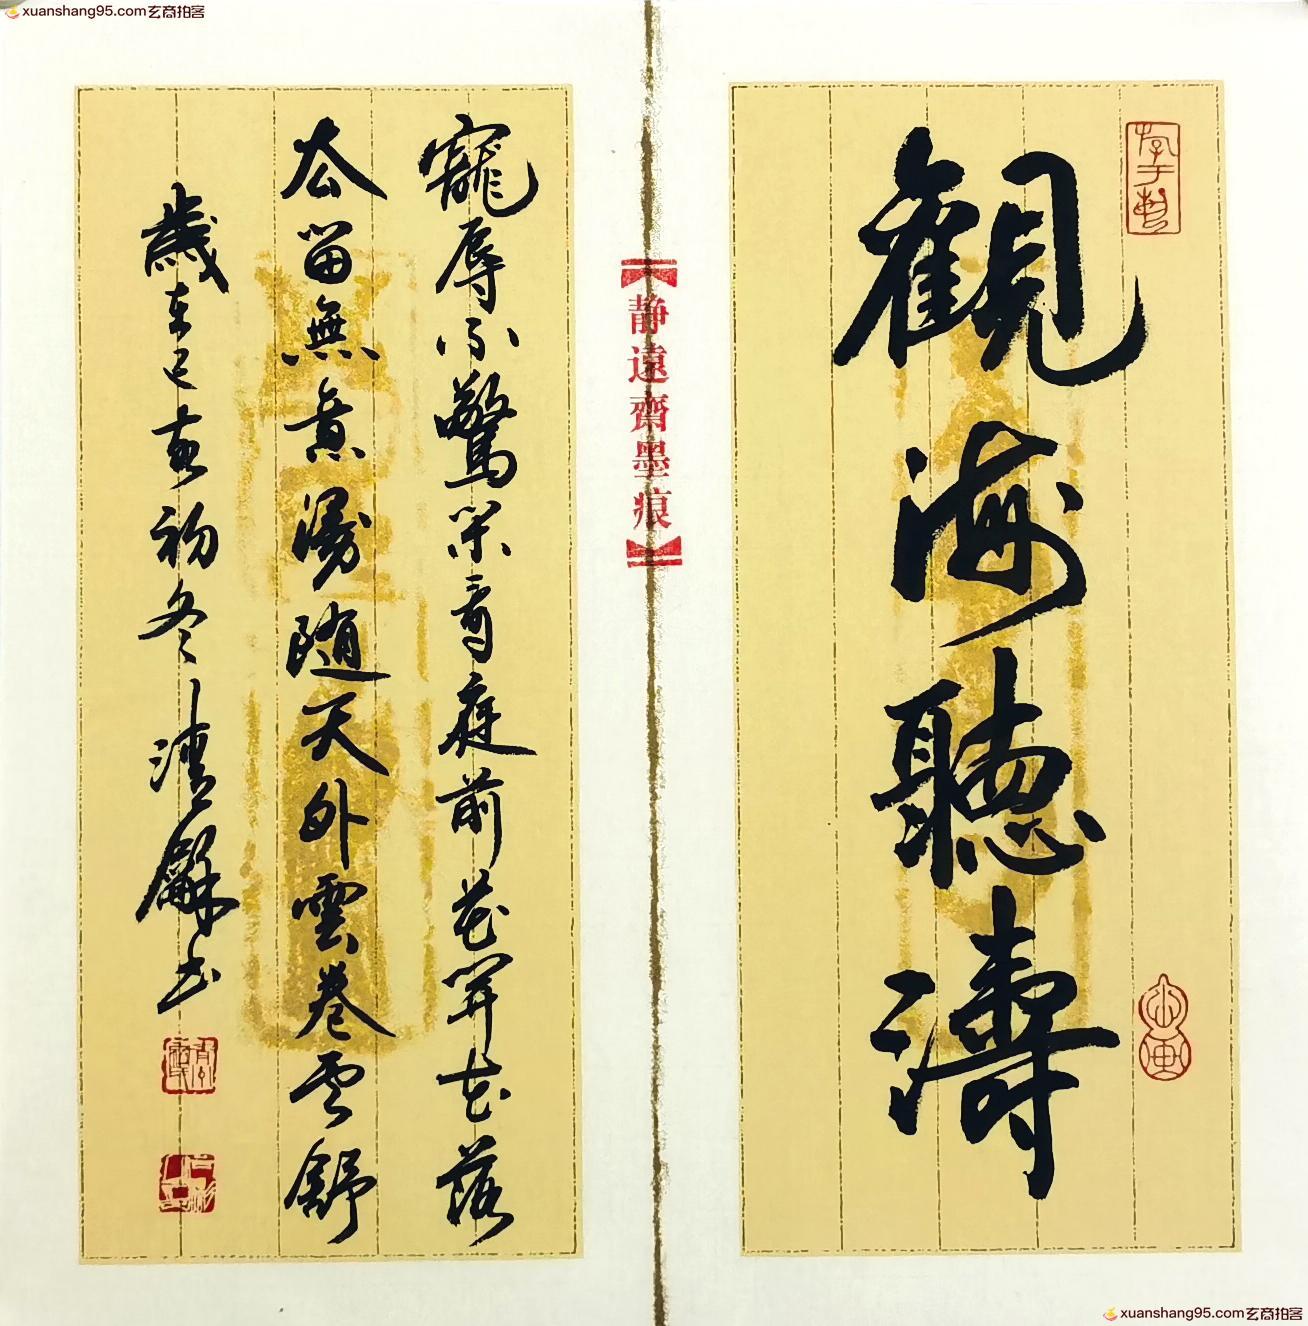 xuanshang95.com玄商拍客
觀海聽濤
【靜遠齋墨痕】
寵辱不驚閑看庭前花開花落
去留無意漫隨天外雲卷雲舒
歲在乙亥初冬清 書
xuanshang95.com玄商拍客